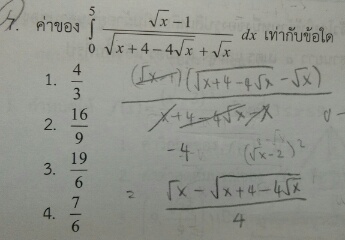 7. ค่าของ ∫₀⁵ (√x − 1)/(√(x + 4 − 4√x) + √x) dx เท่ากับข้อใด
1. 4/3
2. 16/9
3. 19/6
4. 7/6
(√x − 1)(√(x + 4 − 4√x) − √x)
x + 4 − 4√x − x
−4 (√x − 2)²
= (√x − √(x + 4 − 4√x))/4